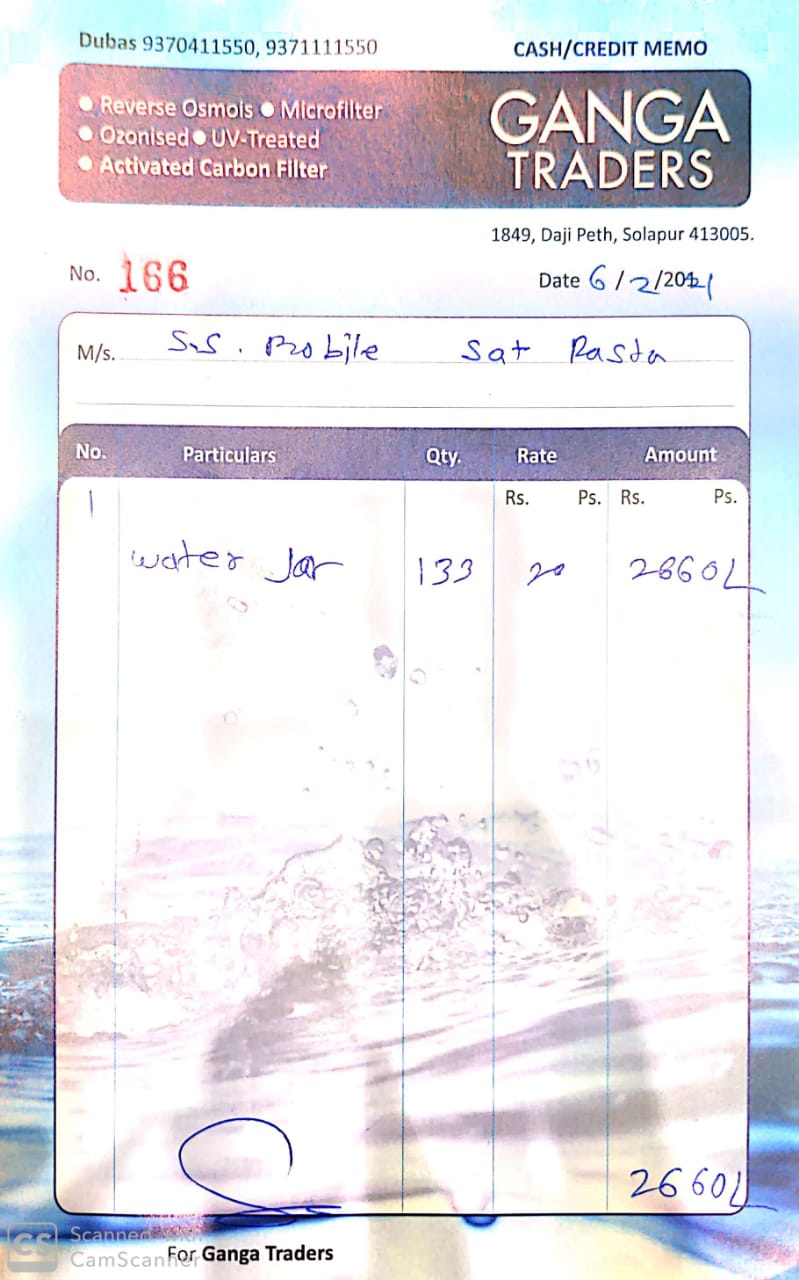 Dubas 9370411550, 9371111550
CASH/CREDIT MEMO
● Reverse Osmois ● Microfilter
● Ozonised ● UV-Treated
● Activated Carbon Filter
GANGA
TRADERS
1849, Daji Peth, Solapur 413005.
No. 166
Date 6/2/2021
M/s. S.S. Mobile Sat Rasta
No. Particulars Qty. Rate Amount
Rs. Ps. Rs. Ps.
1 water Jar 133 20 2660
2660
For Ganga Traders
CS Scanned with
CamScanner